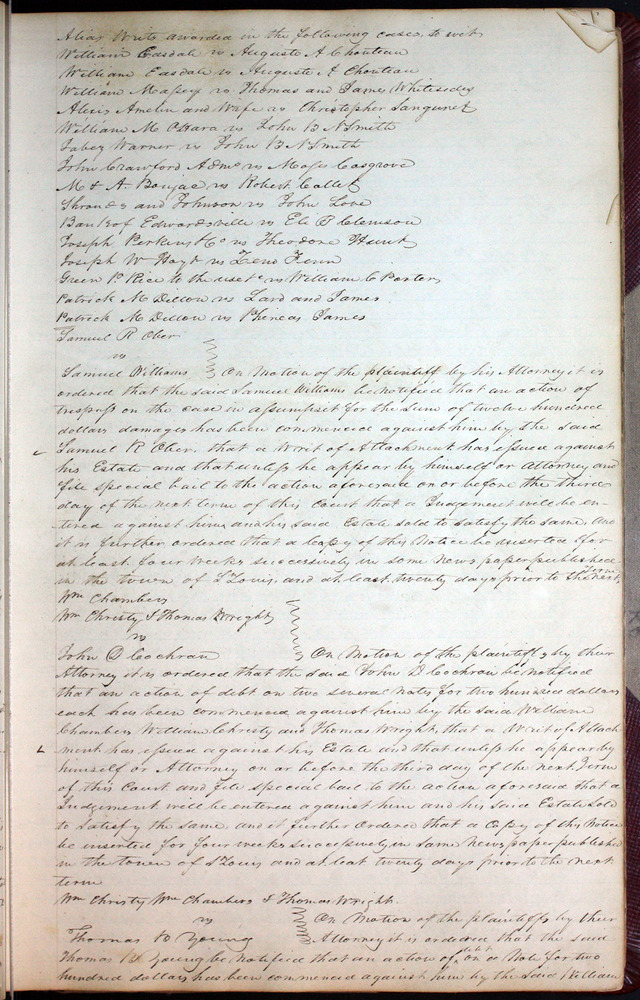 Alias Writs awarded in the following cases, to wit,
William Easdale vs Auguste A Chouteau
William Easdale vs Auguste A Chouteau
William Massey vs Thomas and James Whitesides
Alexis Amelin and Wife vs Christopher Sanguinet
William M OHara vs John B N Smith
Jabez Warner vs John B N Smith
John Crawford Admr vs Moses Casgrove
M & A Boujac vs Robert Collet
Shrouds and Johnson vs John Love
Bank of Edwardsville vs Eli B Clemson
Joseph Perkins & Co vs Theodore Hunt
Joseph W Hoyt vs Zeno Fenn
Green P. Rice to the use &c vs William C Porter
Patrick M Dillow vs Lard and James
Patrick M Dillow vs Phineas James
Samuel R Ober
vs
Samuel Williams } On Motion of the plaintiff by his Attorney it is
ordered that the said Samuel Williams be notified that an action of
trespass on the case in assumpsit for the sum of twelve hundred
dollars damages has been commenced against him by the said
Samuel R Ober, that a Writ of Attachment has issued against
his Estate and that unless he appear by himself or Attorney and
file special bail to the action aforesaid on or before the third
day of the next term of this Court that a Judgement will be en-
tered against him, and his said Estate sold to satisfy the same, and
it is further ordered that a Copy of this Notice be inserted for
at least four weeks successively in some news paper published
in the town of S Louis, and at least twenty days prior to the next Term
Wm Chambers
Wm Christy & Thomas Wright
vs
John D Cochran } On Motion of the plaintiffs by their
Attorney it is ordered that the said John D Cochran be notified
that an action of debt on two several notes for two hundred dollars
each has been commenced against him by the said William
Chambers William Christy and Thomas Wright, that a Writ of Attach
ment has issued against his Estate and that unless he appear by
himself or Attorney on or before the third day of the next Term
of this Court and file special bail to the action aforesaid that a
Judgement will be entered against him and his said Estate sold
to satisfy the same, and it further ordered that a Copy of this Notice
be inserted for four weeks successively in some news paper published
in the town of S Louis and at least twenty days prior to the next
term
Wm Christy Wm Chambers & Thomas Wright.
vs } On Motion of the plaintiffs by their
Thomas B Young } Attorney it is ordered that the said
Thomas B Young be notified that an action of debt on a Note for two
hundred dollars has been commenced against him by the said William